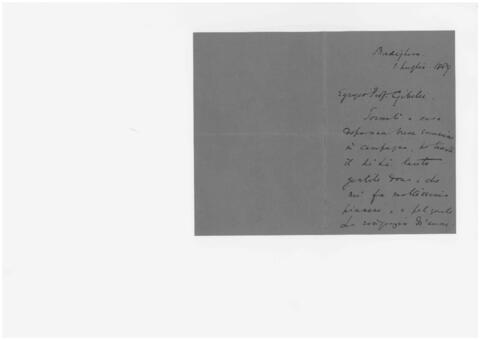 Bordighera
1 Luglio 1889
Egregio Prof. Gibelli
Tornati a casa
dopo una breve
in campagna, ho trovato
il di Lei tanto
gentile dono, che
mi fa moltissimo
piacere, e pel quale
La ringrazio